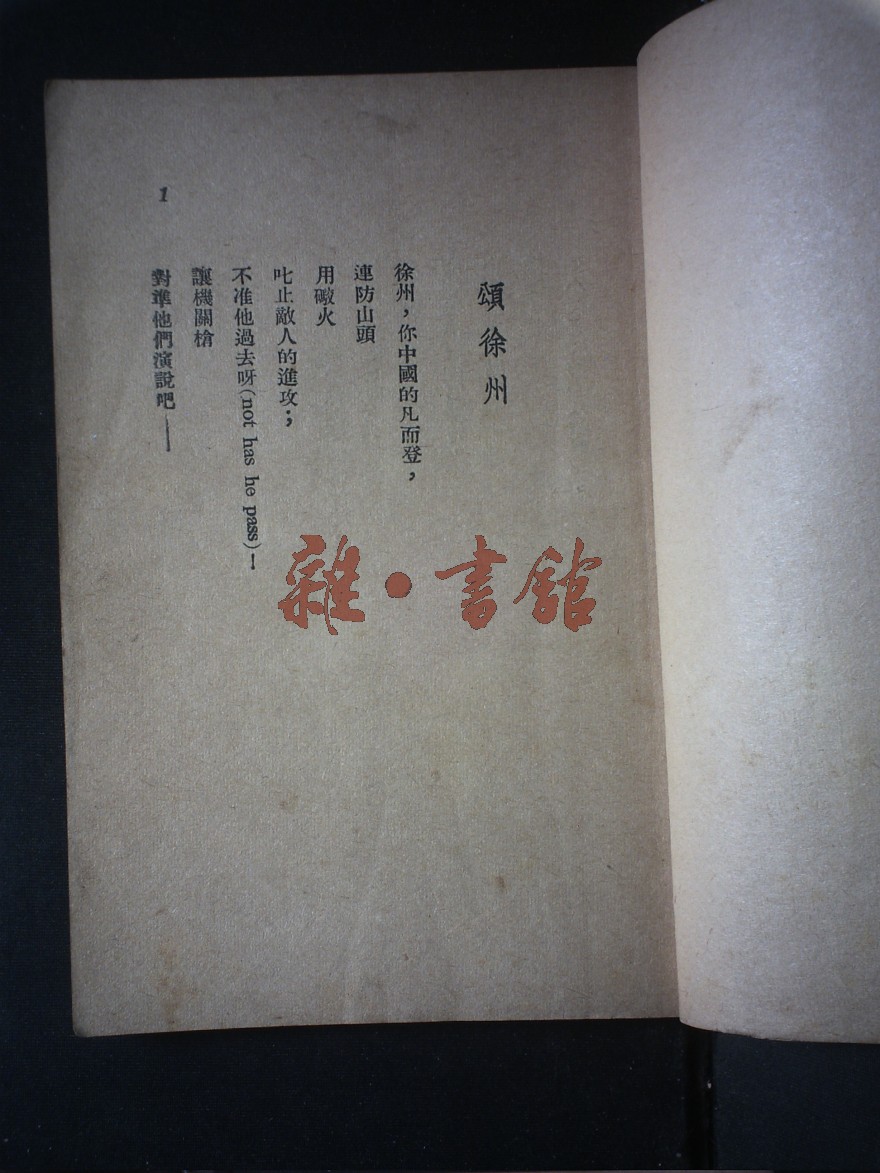 頌徐州
徐州，你中國的凡而登，
連防山頭
用礮火
叱止敵人的進攻；
不准他過去呀(not has he pass)！
讓機關槍
對準他們演說吧——
1
雜·書館